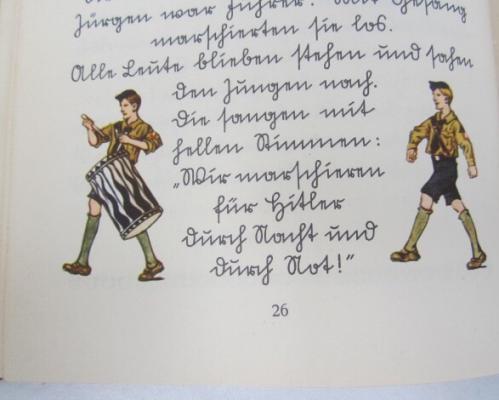 Jürgen war Führer. Mit Gesang
marschierten sie los.
Alle Leute blieben stehen und sahen
den Jungen nach.
Die sangen mit
hellen Stimmen:
„Wir marschieren
für Hitler
durch Nacht und
durch Not!“
26